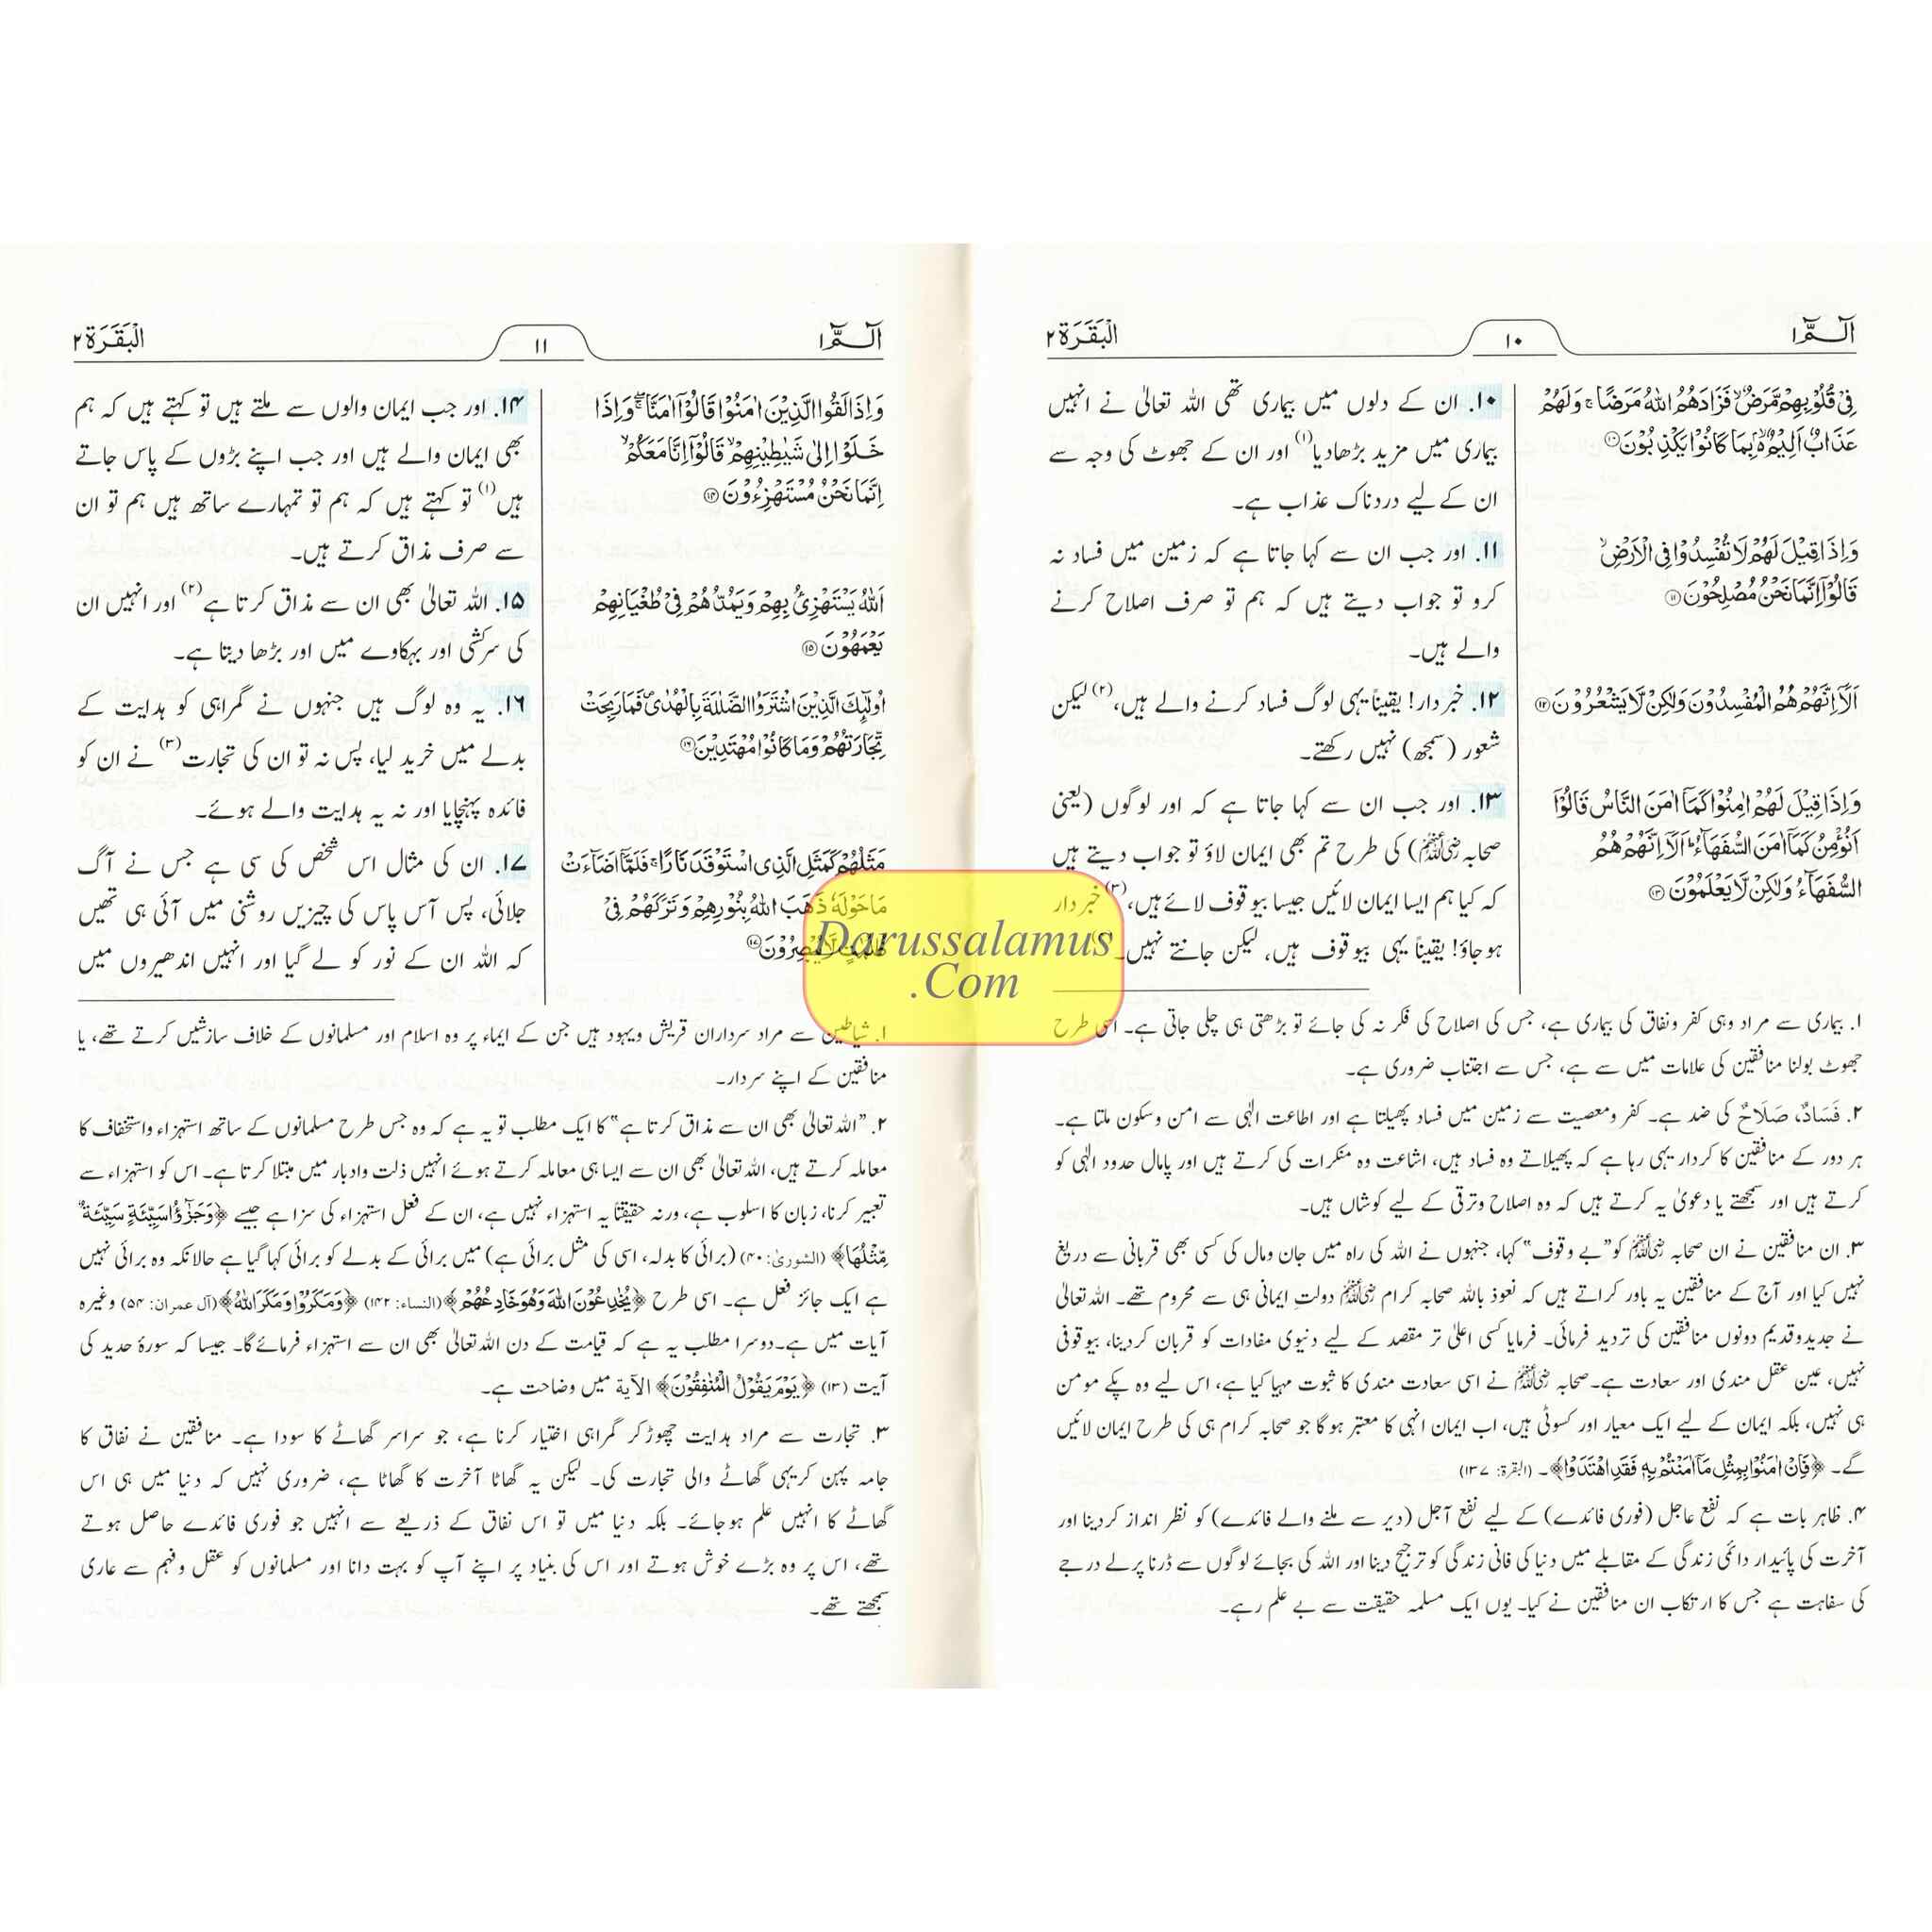 الٓـمّٓ ۱
۱۰
البَقَرَة ۲
فِیْ قُلُوْبِهِمْ مَّرَضٌ ۙ فَزَادَهُمُ اللّٰهُ مَرَضًا ۚ وَلَهُمْ
عَذَابٌ اَلِیْمٌۢ ۙ بِمَا كَانُوْا یَكْذِبُوْنَ ⑩
وَاِذَا قِیْلَ لَهُمْ لَا تُفْسِدُوْا فِی الْاَرْضِ ۙ
قَالُوْۤا اِنَّمَا نَحْنُ مُصْلِحُوْنَ ⑪
اَلَاۤ اِنَّهُمْ هُمُ الْمُفْسِدُوْنَ وَلٰكِنْ لَّا یَشْعُرُوْنَ ⑫
وَاِذَا قِیْلَ لَهُمْ اٰمِنُوْا كَمَاۤ اٰمَنَ النَّاسُ قَالُوْۤا
اَنُؤْمِنُ كَمَاۤ اٰمَنَ السُّفَهَآءُ ؕ اَلَاۤ اِنَّهُمْ هُمُ
السُّفَهَآءُ وَلٰكِنْ لَّا یَعْلَمُوْنَ ⑬
۱۰. ان کے دلوں میں بیماری تھی اللہ تعالیٰ نے انہیں
بیماری میں مزید بڑھادیا(۱) اور ان کے جھوٹ کی وجہ سے
ان کے لیے دردناک عذاب ہے۔
۱۱. اور جب ان سے کہا جاتا ہے کہ زمین میں فساد نہ
کرو تو جواب دیتے ہیں کہ ہم تو صرف اصلاح کرنے
والے ہیں۔
۱۲. خبردار! یقیناً یہی لوگ فساد کرنے والے ہیں،(۲) لیکن
شعور (سمجھ) نہیں رکھتے۔
۱۳. اور جب ان سے کہا جاتا ہے کہ اور لوگوں (یعنی
صحابہ رضی اللہ عنہم) کی طرح تم بھی ایمان لاؤ تو جواب دیتے ہیں
کہ کیا ہم ایسا ایمان لائیں جیسا بیوقوف لائے ہیں،(۳) خبردار
ہوجاؤ! یقیناً یہی بیوقوف ہیں، لیکن جانتے نہیں۔
۱. بیماری سے مراد وہی کفر ونفاق کی بیماری ہے، جس کی اصلاح کی فکر نہ کی جائے تو بڑھتی ہی چلی جاتی ہے۔ اسی طرح
جھوٹ بولنا منافقین کی علامات میں سے ہے، جس سے اجتناب ضروری ہے۔
۲. فَسَادٌ، صَلَاحٌ کی ضد ہے۔ کفر ومعصیت سے زمین میں فساد پھیلتا ہے اور اطاعت الٰہی سے امن وسکون ملتا ہے۔
ہر دور کے منافقین کا کردار یہی رہا ہے کہ پھیلاتے وہ فساد ہیں، اشاعت وہ منکرات کی کرتے ہیں اور پامال حدود الٰہی کو
کرتے ہیں اور سمجھتے یا دعویٰ یہ کرتے ہیں کہ وہ اصلاح وترقی کے لیے کوشاں ہیں۔
۳. ان منافقین نے ان صحابہ رضی اللہ عنہم کو "بے وقوف" کہا، جنہوں نے اللہ کی راہ میں جان ومال کی کسی بھی قربانی سے دریغ
نہیں کیا اور آج کے منافقین یہ باور کراتے ہیں کہ نعوذ باللہ صحابہ کرام رضی اللہ عنہم دولتِ ایمانی ہی سے محروم تھے۔ اللہ تعالیٰ
نے جدید وقدیم دونوں منافقین کی تردید فرمائی۔ فرمایا کسی اعلیٰ تر مقصد کے لیے دنیوی مفادات کو قربان کردینا، بیوقوفی
نہیں، عین عقل مندی اور سعادت ہے۔ صحابہ رضی اللہ عنہم نے اسی سعادت مندی کا ثبوت مہیا کیا ہے، اس لیے وہ پکے مومن
ہی نہیں، بلکہ ایمان کے لیے ایک معیار اور کسوٹی ہیں، اب ایمان انہی کا معتبر ہوگا جو صحابہ کرام ہی کی طرح ایمان لائیں
گے۔ ﴿فَاِنْ اٰمَنُوْا بِمِثْلِ مَاۤ اٰمَنْتُمْ بِهٖ فَقَدِ اهْتَدَوْا﴾۔ (البقرۃ: ۱۳۷)
۴. ظاہر بات ہے کہ نفع عاجل (فوری فائدے) کے لیے نفع آجل (دیر سے ملنے والے فائدے) کو نظر انداز کردینا اور
آخرت کی پائیدار دائمی زندگی کے مقابلے میں دنیا کی فانی زندگی کو ترجیح دینا اور اللہ کی بجائے لوگوں سے ڈرنا پرلے درجے
کی سفاہت ہے جس کا ارتکاب ان منافقین نے کیا۔ یوں ایک مسلمہ حقیقت سے بے علم رہے۔
الٓـمّٓ ۱
۱۱
البَقَرَة ۲
وَاِذَا لَقُوا الَّذِیْنَ اٰمَنُوْا قَالُوْۤا اٰمَنَّا ۖۚ وَاِذَا
خَلَوْا اِلٰی شَیٰطِیْنِهِمْ ۙ قَالُوْۤا اِنَّا مَعَكُمْ ۙ
اِنَّمَا نَحْنُ مُسْتَهْزِءُوْنَ ⑭
اَللّٰهُ یَسْتَهْزِئُ بِهِمْ وَیَمُدُّهُمْ فِیْ طُغْیَانِهِمْ
یَعْمَهُوْنَ ⑮
اُولٰٓئِكَ الَّذِیْنَ اشْتَرَوُا الضَّلٰلَةَ بِالْهُدٰی ۪ فَمَا رَبِحَتْ
تِّجَارَتُهُمْ وَمَا كَانُوْا مُهْتَدِیْنَ ⑯
مَثَلُهُمْ كَمَثَلِ الَّذِی اسْتَوْقَدَ نَارًا ۚ فَلَمَّاۤ اَضَآءَتْ
مَا حَوْلَهٗ ذَهَبَ اللّٰهُ بِنُوْرِهِمْ وَتَرَكَهُمْ فِیْ
ظُلُمٰتٍ لَّا یُبْصِرُوْنَ ⑰
۱۴. اور جب ایمان والوں سے ملتے ہیں تو کہتے ہیں کہ ہم
بھی ایمان والے ہیں اور جب اپنے بڑوں کے پاس جاتے
ہیں(۱) تو کہتے ہیں کہ ہم تو تمہارے ساتھ ہیں ہم تو ان
سے صرف مذاق کرتے ہیں۔
۱۵. اللہ تعالیٰ بھی ان سے مذاق کرتا ہے(۲) اور انہیں ان
کی سرکشی اور بہکاوے میں اور بڑھا دیتا ہے۔
۱۶. یہ وہ لوگ ہیں جنہوں نے گمراہی کو ہدایت کے
بدلے میں خرید لیا، پس نہ تو ان کی تجارت(۳) نے ان کو
فائدہ پہنچایا اور نہ یہ ہدایت والے ہوئے۔
۱۷. ان کی مثال اس شخص کی سی ہے جس نے آگ
جلائی، پس آس پاس کی چیزیں روشنی میں آئی ہی تھیں
کہ اللہ ان کے نور کو لے گیا اور انہیں اندھیروں میں
۱. شیاطین سے مراد سرداران قریش ویہود ہیں جن کے ایماء پر وہ اسلام اور مسلمانوں کے خلاف سازشیں کرتے تھے، یا
منافقین کے اپنے سردار۔
۲. "اللہ تعالیٰ بھی ان سے مذاق کرتا ہے" کا ایک مطلب تو یہ ہے کہ وہ جس طرح مسلمانوں کے ساتھ استہزاء واستخفاف کا
معاملہ کرتے ہیں، اللہ تعالیٰ بھی ان سے ایسا ہی معاملہ کرتے ہوئے انہیں ذلت وادبار میں مبتلا کرتا ہے۔ اس کو استہزاء سے
تعبیر کرنا، زبان کا اسلوب ہے، ورنہ حقیقتاً یہ استہزاء نہیں ہے، ان کے فعل استہزاء کی سزا ہے جیسے ﴿وَجَزٰٓؤُا سَیِّئَةٍ سَیِّئَةٌ
مِّثْلُهَا﴾ (الشوریٰ: ۴۰) (برائی کا بدلہ، اسی کی مثل برائی ہے) میں برائی کے بدلے کو برائی کہا گیا ہے حالانکہ وہ برائی نہیں
ہے ایک جائز فعل ہے۔ اسی طرح ﴿یُخٰدِعُوْنَ اللّٰهَ وَهُوَ خَادِعُهُمْ﴾ (النساء: ۱۴۲) ﴿وَمَكَرُوْا وَمَكَرَ اللّٰهُ﴾ (آل عمران: ۵۴) وغیرہ
آیات میں ہے۔ دوسرا مطلب یہ ہے کہ قیامت کے دن اللہ تعالیٰ بھی ان سے استہزاء فرمائے گا۔ جیسا کہ سورۂ حدید کی
آیت (۱۳) ﴿یَوْمَ یَقُوْلُ الْمُنٰفِقُوْنَ﴾ الآیة میں وضاحت ہے۔
۳. تجارت سے مراد ہدایت چھوڑ کر گمراہی اختیار کرنا ہے، جو سراسر گھاٹے کا سودا ہے۔ منافقین نے نفاق کا
جامہ پہن کر یہی گھاٹے والی تجارت کی۔ لیکن یہ گھاٹا آخرت کا گھاٹا ہے، ضروری نہیں کہ دنیا میں ہی اس
گھاٹے کا انہیں علم ہوجائے۔ بلکہ دنیا میں تو اس نفاق کے ذریعے سے انہیں جو فوری فائدے حاصل ہوتے
تھے، اس پر وہ بڑے خوش ہوتے اور اس کی بنیاد پر اپنے آپ کو بہت دانا اور مسلمانوں کو عقل وفہم سے عاری
سمجھتے تھے۔
Darussalamus
.Com